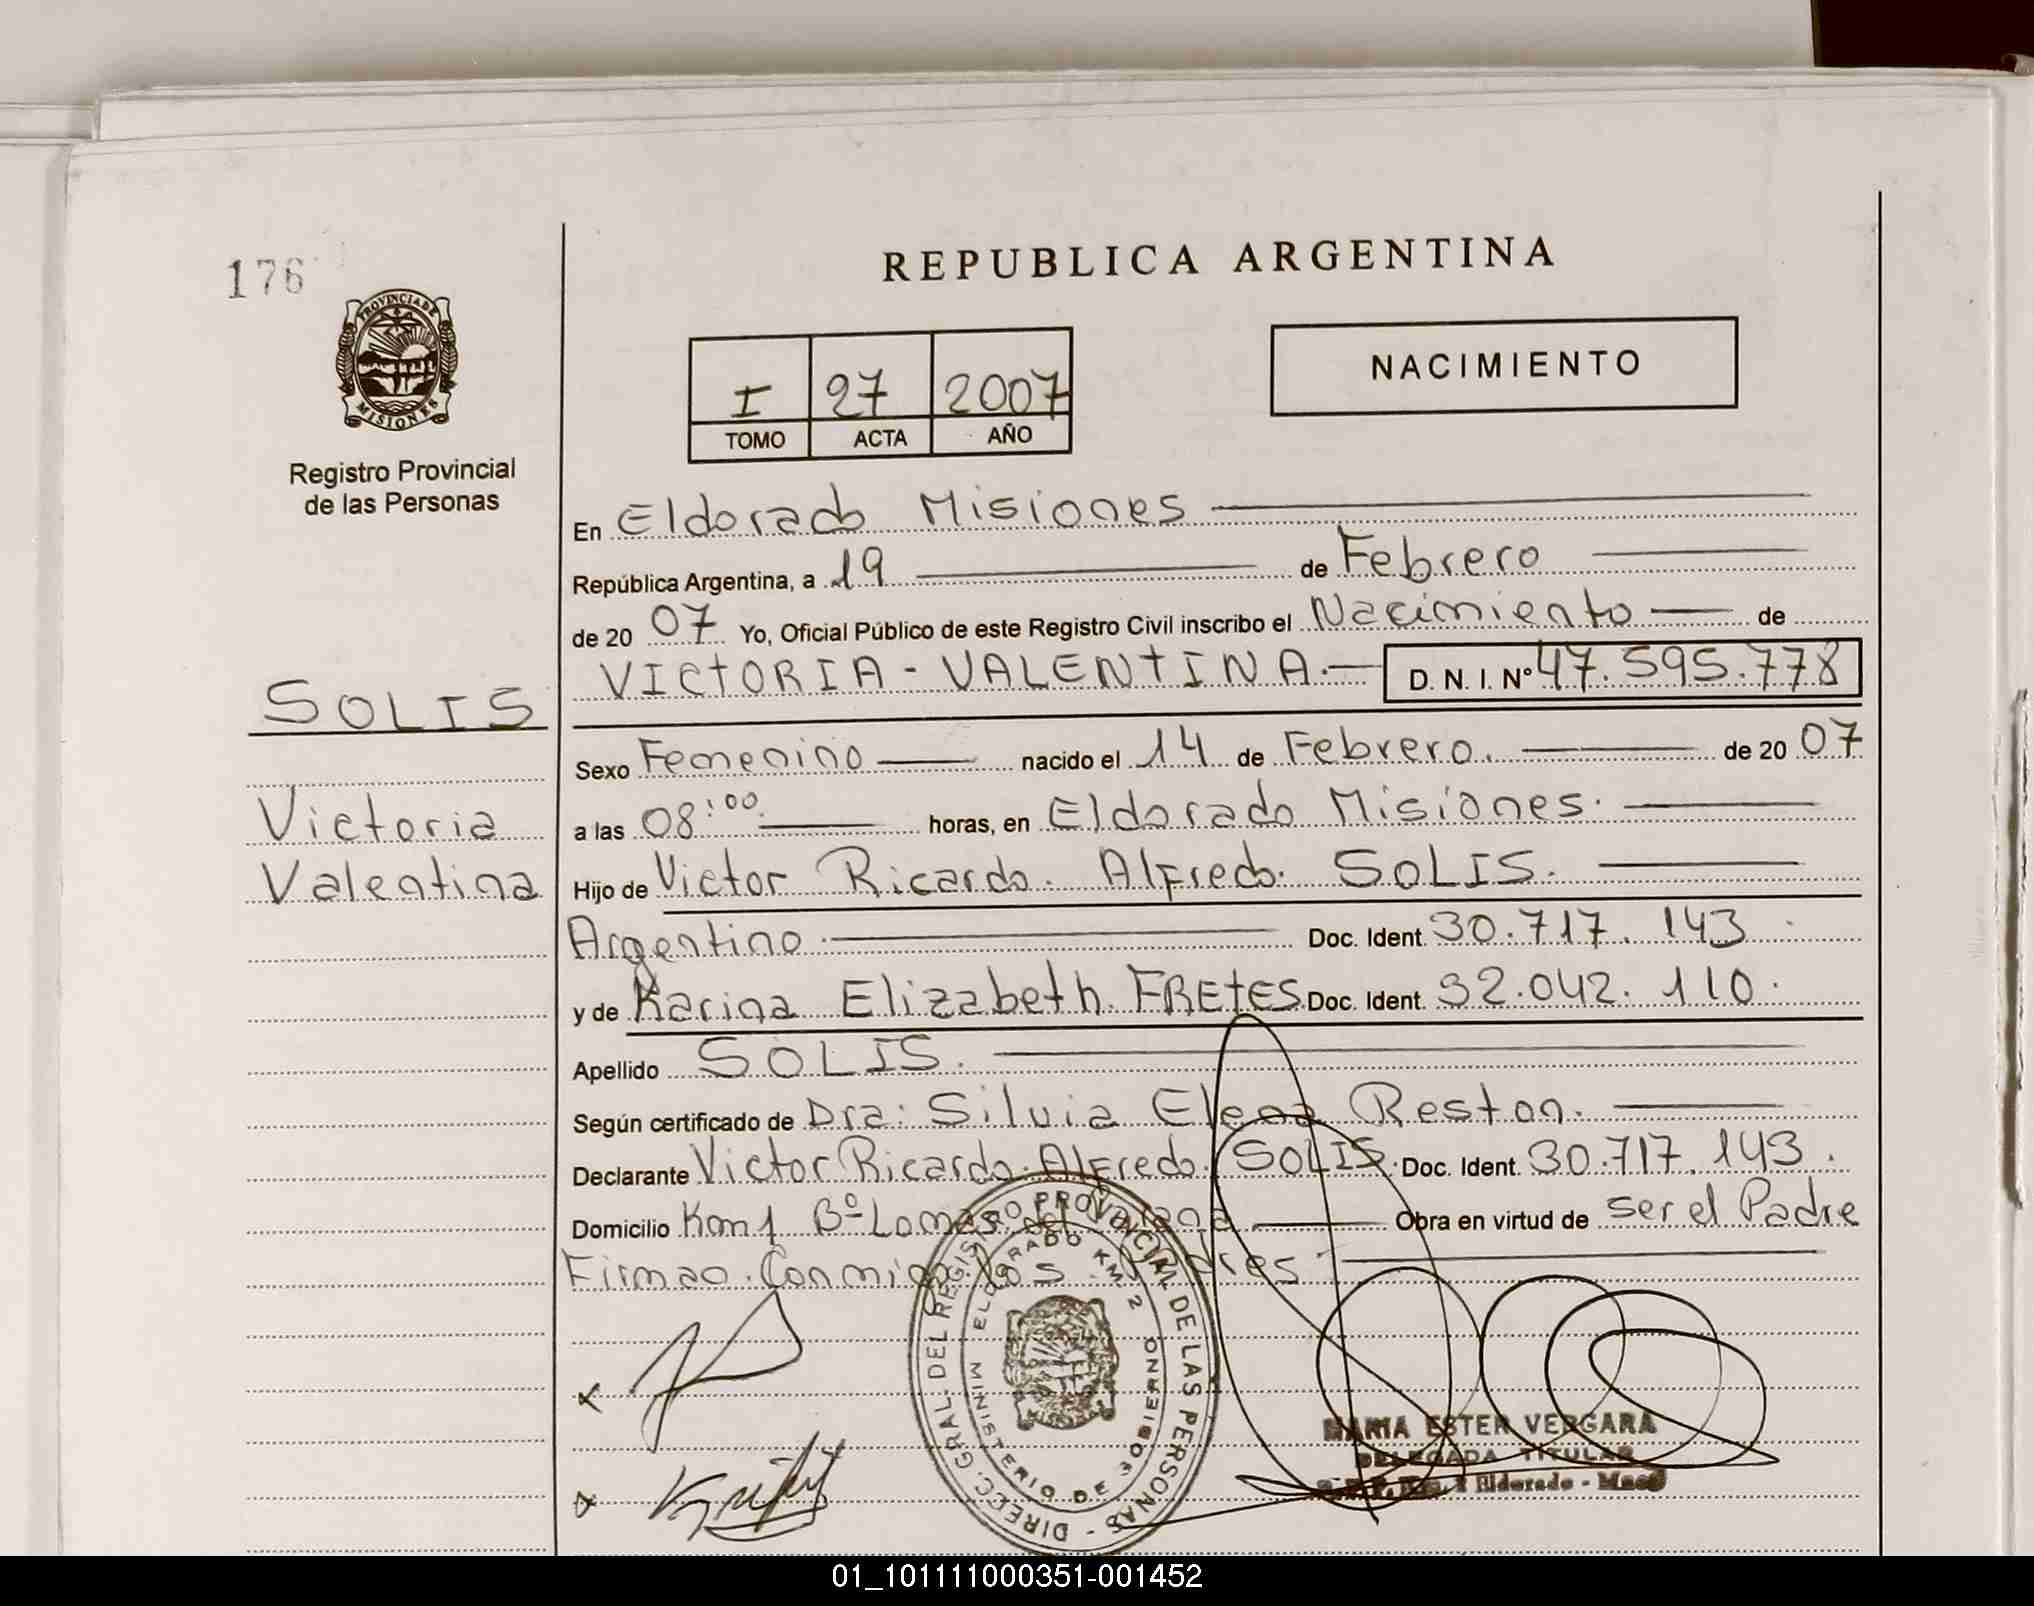 176
PROVINCIA DE
MISIONES
Registro Provincial
de las Personas
SOLIS
Victoria
Valentina
REPUBLICA ARGENTINA
I 27 2007
TOMO ACTA AÑO
NACIMIENTO
En Eldorado Misiones
República Argentina, a 19 de Febrero
de 20 07 Yo, Oficial Público de este Registro Civil inscribo el Nacimiento de
VICTORIA - VALENTINA.- D. N. I. Nº 47.595.778
Sexo Femenino nacido el 14 de Febrero. de 20 07
a las 08:00 horas, en Eldorado Misiones.
Hijo de Victor Ricardo. Alfredo. SOLIS.
Argentino Doc. Ident. 30.717.143
y de Karina Elizabeth. FRETES Doc. Ident. 32.042.110.
Apellido SOLIS.
Según certificado de Dra: Silvia Elena Reston.
Declarante Victor Ricardo. Alfredo. SOLIS. Doc. Ident. 30.717.143.
Domicilio Km 1 Bº Lomas Obra en virtud de ser el Padre
Firman. Conmigo los Padres
DIRECC. GRAL. DEL REGISTRO PROVINCIAL DE LAS PERSONAS -
MINISTERIO DE GOBIERNO
ELDORADO KM. 2
MARIA ESTER VERGARA
DELEGADA TITULAR
Eldorado - Mnes
01_101111000351-001452